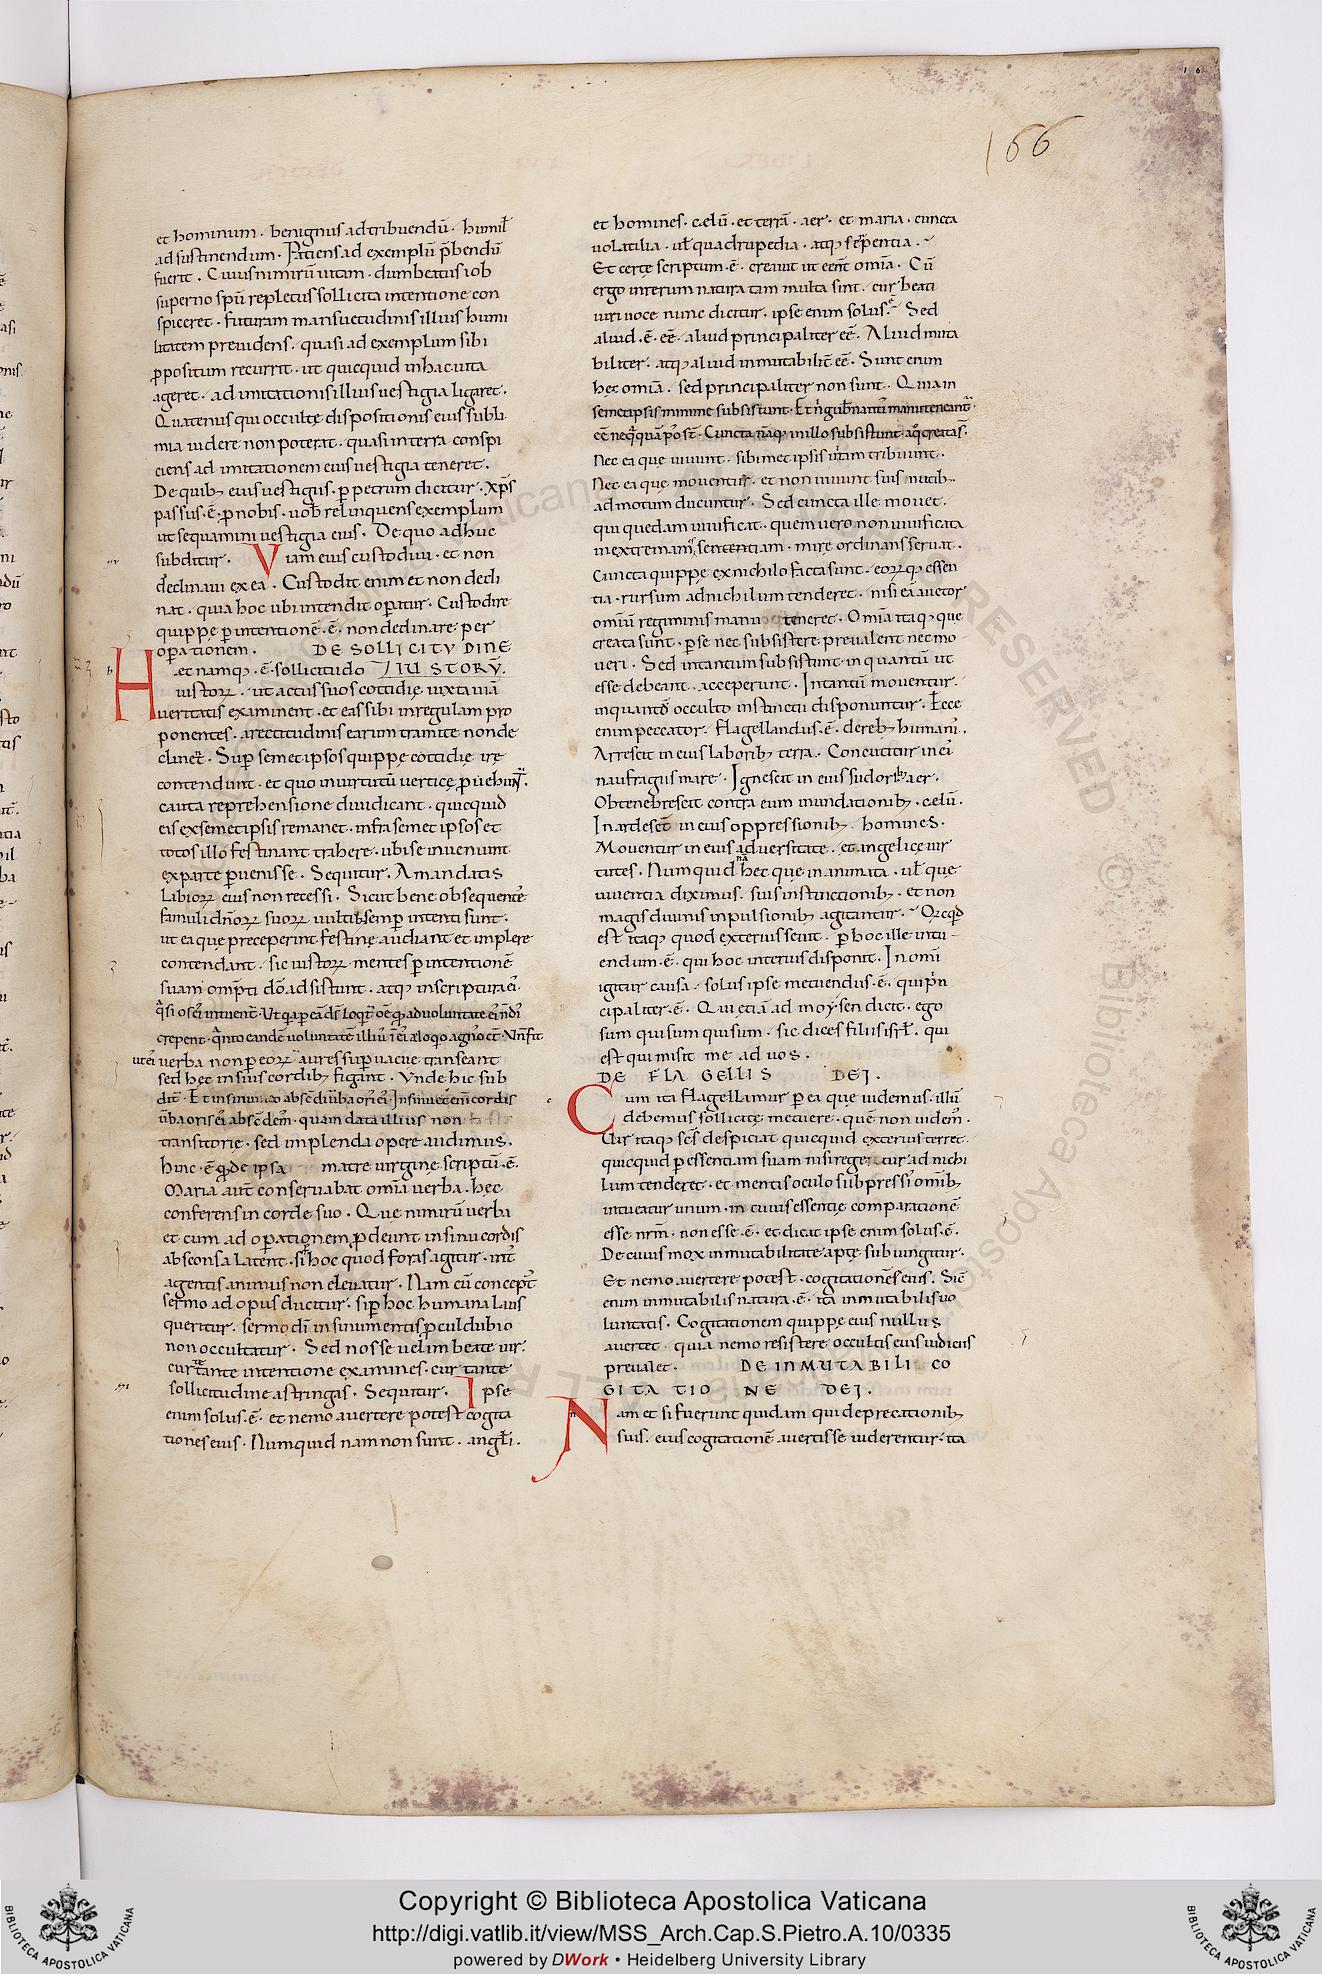 166
et hominum · benignus ad tribuendū · humil̄
ad sustinendum · Patiens ad exemplū p̄bendū
fuerit · Cuius nimirū uitam · dum beatus iob
superno spū repletus sollicita intentione con
spiceret · futuram mansuetudinis illius humi
litatem preuidens · quasi ad exemplum sibi
ꝓpositum recurrit · ut quicquid in hac uita
ageret · ad imitationis illius uestigia ligaret ·
Quatenus qui occultę dispositionis eius subli
mia uidere non poterat · quasi in terra conspi
ciens ad imitationem eius uestigia teneret ·
De quib; eius uestigiis · ꝑ petrum dicitur · xp̄s
passus · ē · ꝓ nobis · uob̄ relinquens exemplum
ut sequamini uestigia eius · De quo adhuc
subditur · Viam eius custodiui · et non
declinaui ex ea · Custodit enim et non decli
nat · quia hoc ubi intendit oꝑatur · Custodire
quippę ꝑ intentionē · ē · non declinare · per
oꝑationem · DE SOLLICITVDINE
Hęc namq; · ē · sollicitudo IUSTORV̄ ·
iustoꝝ · ut actus suos cottidię iuxta uiā
ueritatis examinent · et eas sibi in regulam pro
ponentes · a rectitudinis earum tramite non de
clinent · Suꝑ semetipsos quippę cottidię ire
contendunt · et quo in uirtutū uerticę ꝓuehunt̄ ·
cauta reprehensione diiudicant · quicquid
eis ex semetipsis remanet · infra semetipsos et
totos illo festinant trahere · ubi se inueniunt
ex parte ꝑuenisse · Sequitur · A mandatis
labioꝝ eius non recessi · Sicut bene obsequentes
famuli dn̄oꝝ suoꝝ uultib; semꝑ intenti sunt ·
ut ea que preceperint festinę audiant et implere
contendant · sic iustoꝝ mentes ꝑ intentionē
suam omp̄ti dō adsistunt · atq; in scriptura ei ·
uerba non ꝑ eoꝝ aures suꝑuacue transeant
sed hęc in suis cordib; figant · Vnde hic sub
uerba oris ei abscdm · quam data illius non
transitorie · sed implenda opere audimus ·
hinc · ē · qd de ipsa matre uirginę scriptū · ē ·
Maria aut̄ conseruabat om̄ia uerba · hęc
conferens in corde suo · Que nimirū uerba
et cum ad oꝑationem ꝓdeunt in sinu cordis
absconsa latent · si hoc quod foras agitur · int̄
agentis animus non eleuatur · Nam cū concept̄
sermo ad opus ducitur · si ꝑ hoc humana laus
queritur · sermo dī in sinu mentis ꝓcul dubio
non occultatur · Sed nosse uelim beate uir ·
cur tante intentione examines · cur tante
sollicitudine astringas · Sequitur · Ipse
enim solus · ē · et nemo auertere potest cogita
tiones eius · Numquid nam non sunt · angl̄i ·
et homines · cęlū · et terrā · aer · et maria · cuncta
uolatilia · ul̄ quadrupedia · atq; serpentia ·
Et certe scriptum · ē · creauit ut eēnt om̄ia · Cū
ergo in rerum natura tam multa sint · cur beati
uiri uoce nunc dicitur · ipse enim solus · ē · Sed
aliud · ē · eē · aliud principaliter eē · Aliud muta
biliter · atq; aliud inmutabilit̄ eē · Sunt enim
hęc om̄ia · sed principaliter non sunt · Quia in
semetipsis minime subsistunt · Et n̄ gub̄nantis manu teneant̄ ·
eē neq̄quā pos̄t · Cuncta nāq; in illo subsistunt · a q̄ creata s̄ ·
Nec ea quę uiuunt · sibimetipsis uitam tribuunt ·
Nec ea quę mouentur · et non uiuunt suis nutib;
ad motum ducuntur · Sed cuncta ille mouet ·
qui quedam uiuificat · quem uero non uiuificata
in extremam sententiam · mire ordinans seruat ·
Cuncta quippę ex nichilo facta sunt · eoꝝq; essen
tia · rursum ad nichilum tenderet · nisi eā auctor
omiū regiminis manu teneret · Om̄ia itaq; que
creata sunt · ꝑ se nec subsistere preualent nec mo
ueri · Sed in tantum subsistunt in quantū ut
esse debeant acceperunt · In tantū mouentur ·
in quantū occulto instinctu disponuntur · Ecce
enim peccator · flagellandus · ē · de reb; humanis ·
Arrescit in eius laborib; terra · Concutitur in ei
naufragiis mare · Ignescit in eius sudorib; aer ·
Obtenebrescit contra eum inundationib; · cęlū ·
Inardesct̄ in eius oppressionib; · homines ·
Mouentur in eius aduersitate · et angelicę uir
tutes · Numquid hęc que inanimata · ul̄ que
uiuentia diximus · suis instinctionib; · et non
magis diuinis inpulsionib; agitantur ·
est itaq; quod exterius seuit · ꝑ hoc ille intu
endum · ē · qui hoc interius disponit · In omī
igitur causa · solus ipse metuendus · ē · qui p̄in
cipaliter · ē · Qui etiā ad moysen dicit · ego
sum qui sum qui sum · sic dices filiis isr̄l · qui
est qui misit me ad uos ·
DE FLAGELLIS DEI ·
Cum ita flagellamur ꝑ ea quę uidemus · illū
debemus sollicitę metuere · quē non uidem̄ ·
Vir itaq; sc̄s despiciat quicquid exterius terret ·
quicquid ꝑ essentiam suam nisi regeretur ad nichi
lum tenderet · et mentis oculo subpressis om̄ib;
intueatur unum · in cuius essentię comparationē
esse nr̄m · non esse · ē · et dicat ipse enim solus · ē ·
De cuius mox inmutabilitate aptę subiungitur ·
Et nemo auertere potest · cogitationēs eius · Sic̄
enim inmutabilis natura · ē · ita inmutabilis uo
luntatis · Cogitationem quippę eius nullus
auertet · quia nemo resistere occultis eius iudiciis
preualet · DE INMUTABILI CO
GITATIONE DEI ·
Nam et si fuerunt quidam qui deprecationib;
suis · eius cogitationē auertisse uiderentur · ita
Copyright © Biblioteca Apostolica Vaticana
http://digi.vatlib.it/view/MSS_Arch.Cap.S.Pietro.A.10/0335
powered by DWork • Heidelberg University Library
BIBLIOTECA APOSTOLICA VATICANA
BIBLIOTECA APOSTOLICA VATICANA